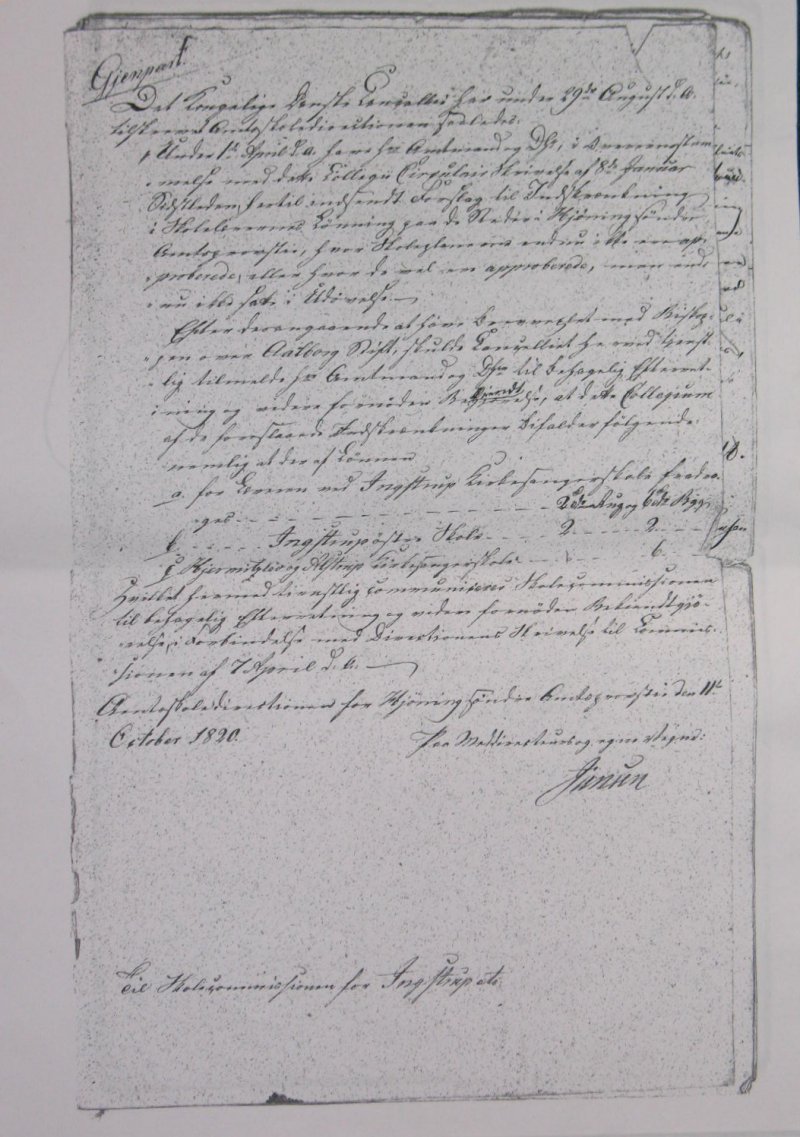 Gjenpart.
Det Kongelige Danske Cancellie har under 29de August d. A.
tilskrevet Amtsskoledirectionen saaledes:
"Under 1ste April d. a. have Hr Amtmand og Dhr, i Overensstem
"melse med dette Collegii Circulair Skrivelse af 8de Januar
Sidstleden, hertil indsendt Forslag til Indskrænkning
i Skolelærernes Lønning paa de Steder i Hjöring söndre
Amtsprovstie, hvor Skoleplanerne endnu ikke ere ap-
"proberede, eller hvor de vel ere approberede, men end-
"nu ikke satte i Udövelse.
Efter derangaaende at have brevvexlet med Bisko-
"pen over Aalborg Stift, skulde Cancelliet herved tjenst-
"lig tilmelde Hr Amtmand og Dhr til behagelig Efterret-
"ning og videre fornöden Bekjendtgjörelse, at dette Collegium
af de foreslaaede Indskrænkninger bifalder følgende:
nemlig at der af Lönnen
a. for Læreren ved Ingstrup Kirkesangerskole fradra-
ges - - - 2 Tdr Rug og 6 Tdr Byg
b. - - - Ingstrup östre Skole - - 2 - - 2 - -
c. Hjermitslev og Alstrup Kirkesangerskole - - 6 - -
Hvilket hermed tienstlig communiceres Skolecommissionen
til behagelig Efterretning og videre fornöden Bekiendtgjö-
relse, i Forbindelse med Directionens Skrivelse til Commis-
sionen af 7 April d. A.
Amtsskoledirectionen for Hjöring söndre Amtsprovstie den 11te
October 1820.
Paa Meddirecteurs og egne Vegne:
Til Skolecommissionen for Ingstrup etc